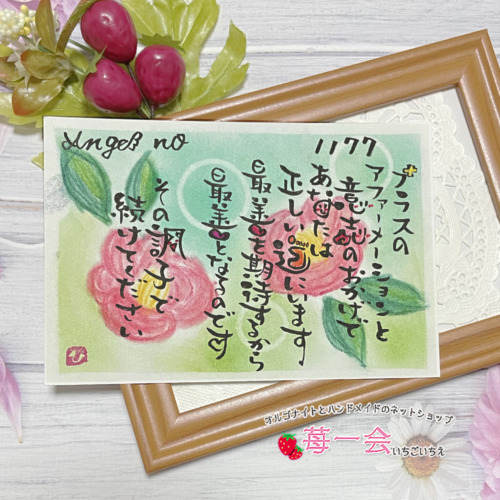 Angel no
1177
プラスの
アファーメーションと
意志のおかげで
あなたは
正しい道にいます
最善を期待するから
最善となるのです
その調子で
続けてください
ひ
オルゴナイトとハンドメイドのネットショップ
苺一会
いちごいちえ